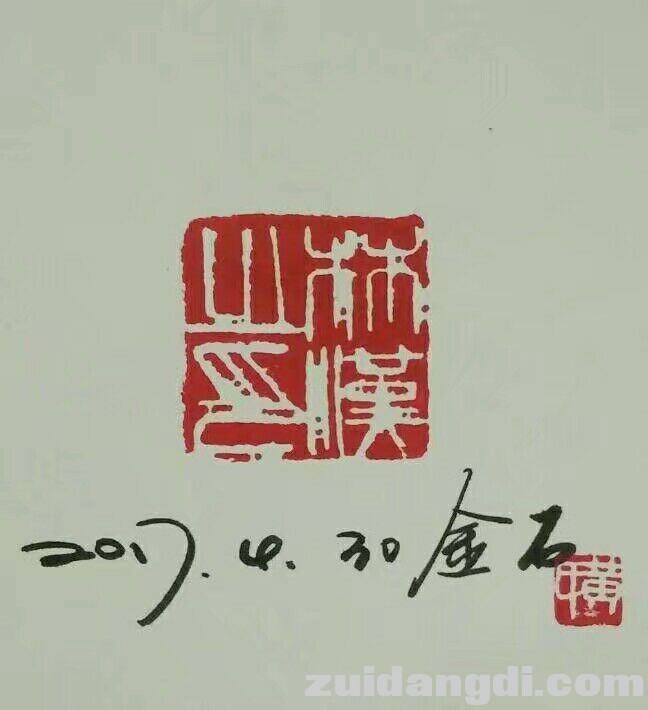 林漢
之印
2017.4.30 金石
zuidangdi.com